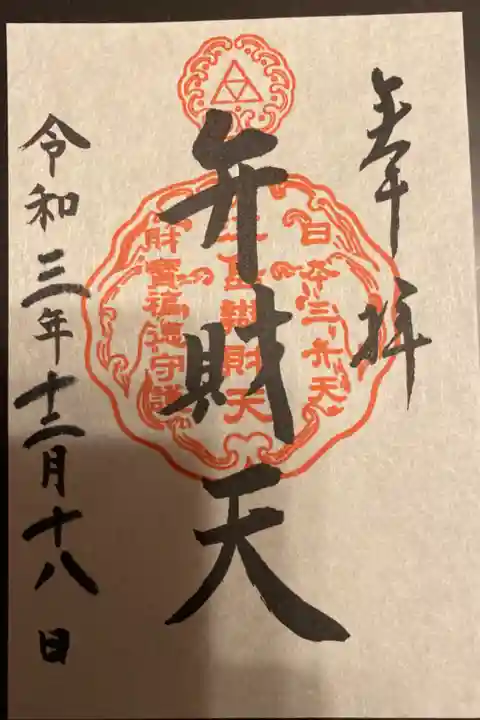 奉拝
日本三弁天
弁財天
財宝福徳守護
令和三年十二月十八日